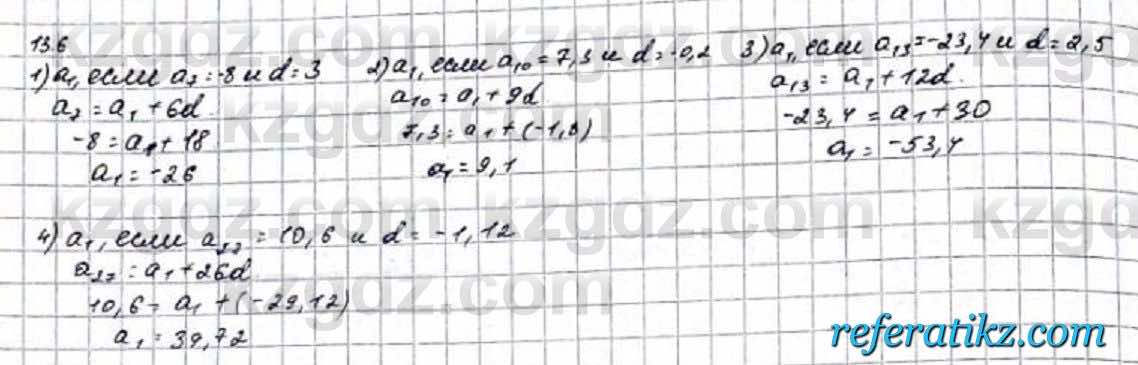 13.6
1) a₁, если a₇ = -8 и d = 3
a₇ = a₁ + 6d
-8 = a₁ + 18
a₁ = -26
2) a₁, если a₁₀ = 7,3 и d = -0,2
a₁₀ = a₁ + 9d
7,3 = a₁ + (-1,8)
a₁ = 9,1
3) a₁, если a₁₃ = -23,4 и d = 2,5
a₁₃ = a₁ + 12d
-23,4 = a₁ + 30
a₁ = -53,4
4) a₁, если a₂₇ = 10,6 и d = -1,12
a₂₇ = a₁ + 26d
10,6 = a₁ + (-29,12)
a₁ = 39,72
kzgdz.com
referatikz.com